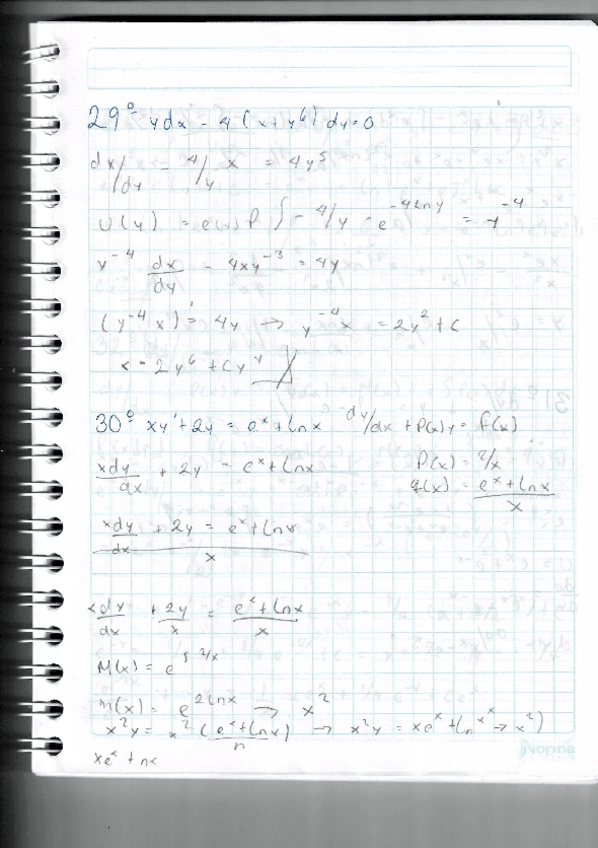 29°- ydx - 4(x+y⁶)dy=0
dx/dy - 4/y x = 4y⁵
U(y) = e(x)p ∫ - 4/y = e^-4Lny = y^-4
y^-4 dx/dy - 4xy^-3 = 4y
(y^-4 x)' = 4y → y^-4 x = 2y² + C
x = 2y⁶ + Cy⁴
30° xy' + 2y = eˣ + Lnx dy/dx + P(x)y = f(x)
xdy/dx + 2y = eˣ + Lnx P(x) = 2/x
q(x) = eˣ + Lnx / x
xdy/dx + 2y = eˣ + Lnx / x
xdy/dx + 2y/x = eˣ + Lnx / x
M(x) = e^∫2/x
m(x) = e^2Lnx → x²
x²y = x² (eˣ + Lnx)/n → x²y = xeˣ + Ln
xeˣ + nx
Norma